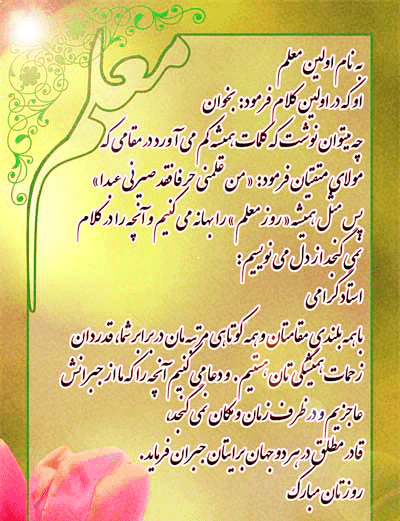 معلم
به نام اولین معلم
او که در اولین کلام فرمود: بخوان
چه میتوان نوشت که کلمات همیشه کم می آورد در مقامی که
مولای متقیان فرمود: «من علمنی حرفا فقد صیرنی عبدا»
پس مثل همیشه «روز معلم» را بهانه می کنیم و آنچه را در کلام
نمی گنجد از دل می نویسیم:
استاد گرامی
با همه بلندی مقامتان و همه کوتاهی مرتبه مان در برابر شما، قدردان
زحمات همیشگی تان هستیم. و دعا می کنیم آنچه را که ما از جبرانش
عاجزیم و در ظرف زمان و مکان نمی گنجد،
قادر مطلق در هر دو جهان برایتان جبران فرماید.
روزتان مبارک